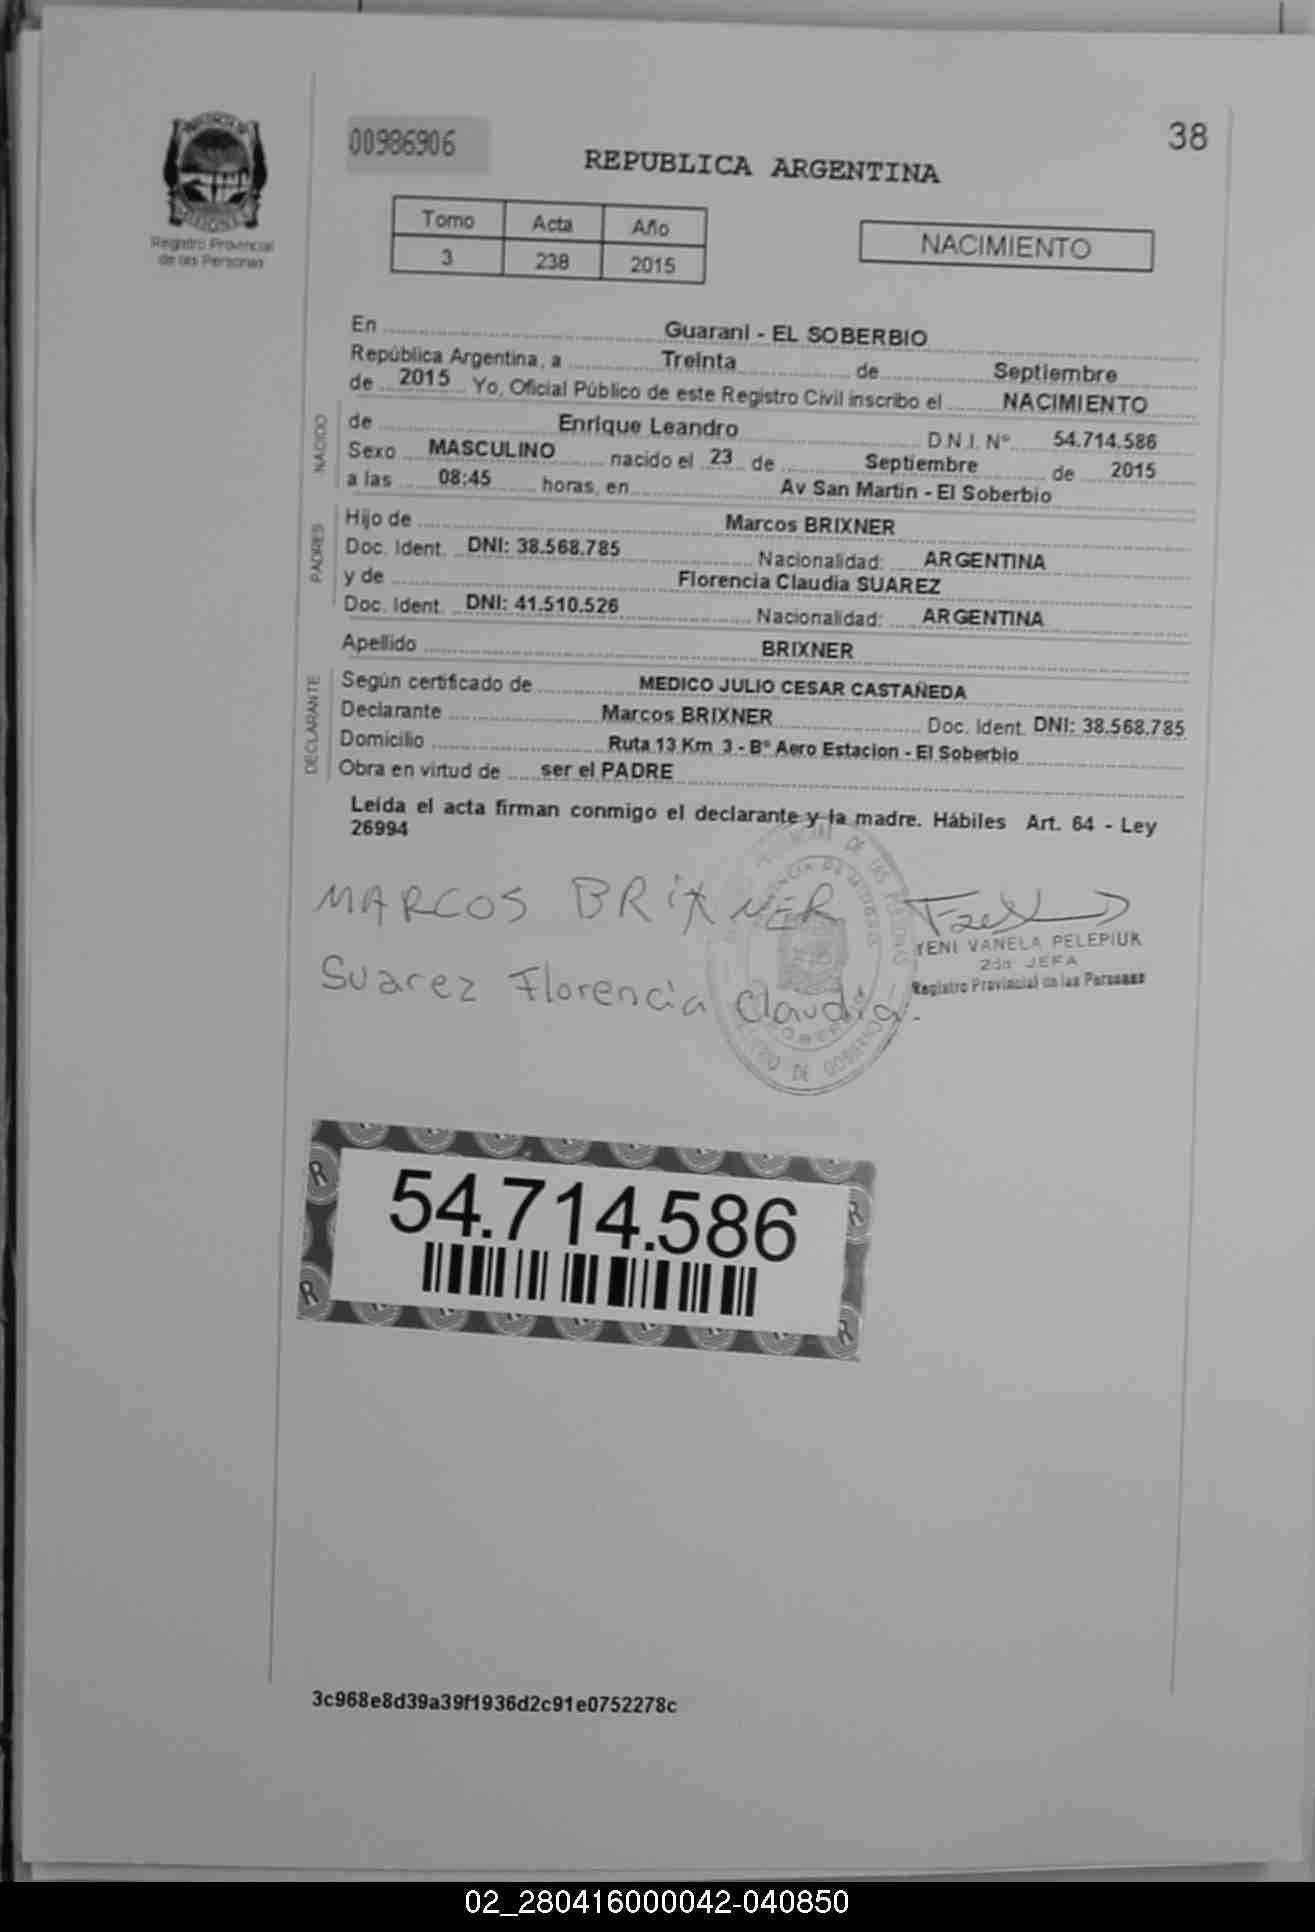 00986906
38
REPUBLICA ARGENTINA
Registro Provincial
de las Personas
Tomo Acta Año
3 238 2015
NACIMIENTO
En Guarani - EL SOBERBIO
República Argentina, a Treinta de Septiembre
de 2015 Yo, Oficial Público de este Registro Civil inscribo el NACIMIENTO
NACIDO
de Enrique Leandro D.N.I. Nº 54.714.586
Sexo MASCULINO nacido el 23 de Septiembre de 2015
a las 08:45 horas, en Av San Martin - El Soberbio
PADRES
Hijo de Marcos BRIXNER
Doc. Ident. DNI: 38.568.785 Nacionalidad: ARGENTINA
y de Florencia Claudia SUAREZ
Doc. Ident. DNI: 41.510.526 Nacionalidad: ARGENTINA
Apellido BRIXNER
DECLARANTE
Según certificado de MEDICO JULIO CESAR CASTAÑEDA
Declarante Marcos BRIXNER Doc. Ident. DNI: 38.568.785
Domicilio Ruta 13 Km 3 - Bº Aero Estacion - El Soberbio
Obra en virtud de ser el PADRE
Leída el acta firman conmigo el declarante y la madre. Hábiles Art. 64 - Ley
26994
MARCOS BRIXNER
YENI VANELA PELEPIUK
2da JEFA
Registro Provincial de las Personas
Suarez Florencia Claudia.
54.714.586
3c968e8d39a39f1936d2c91e0752278c
02_280416000042-040850